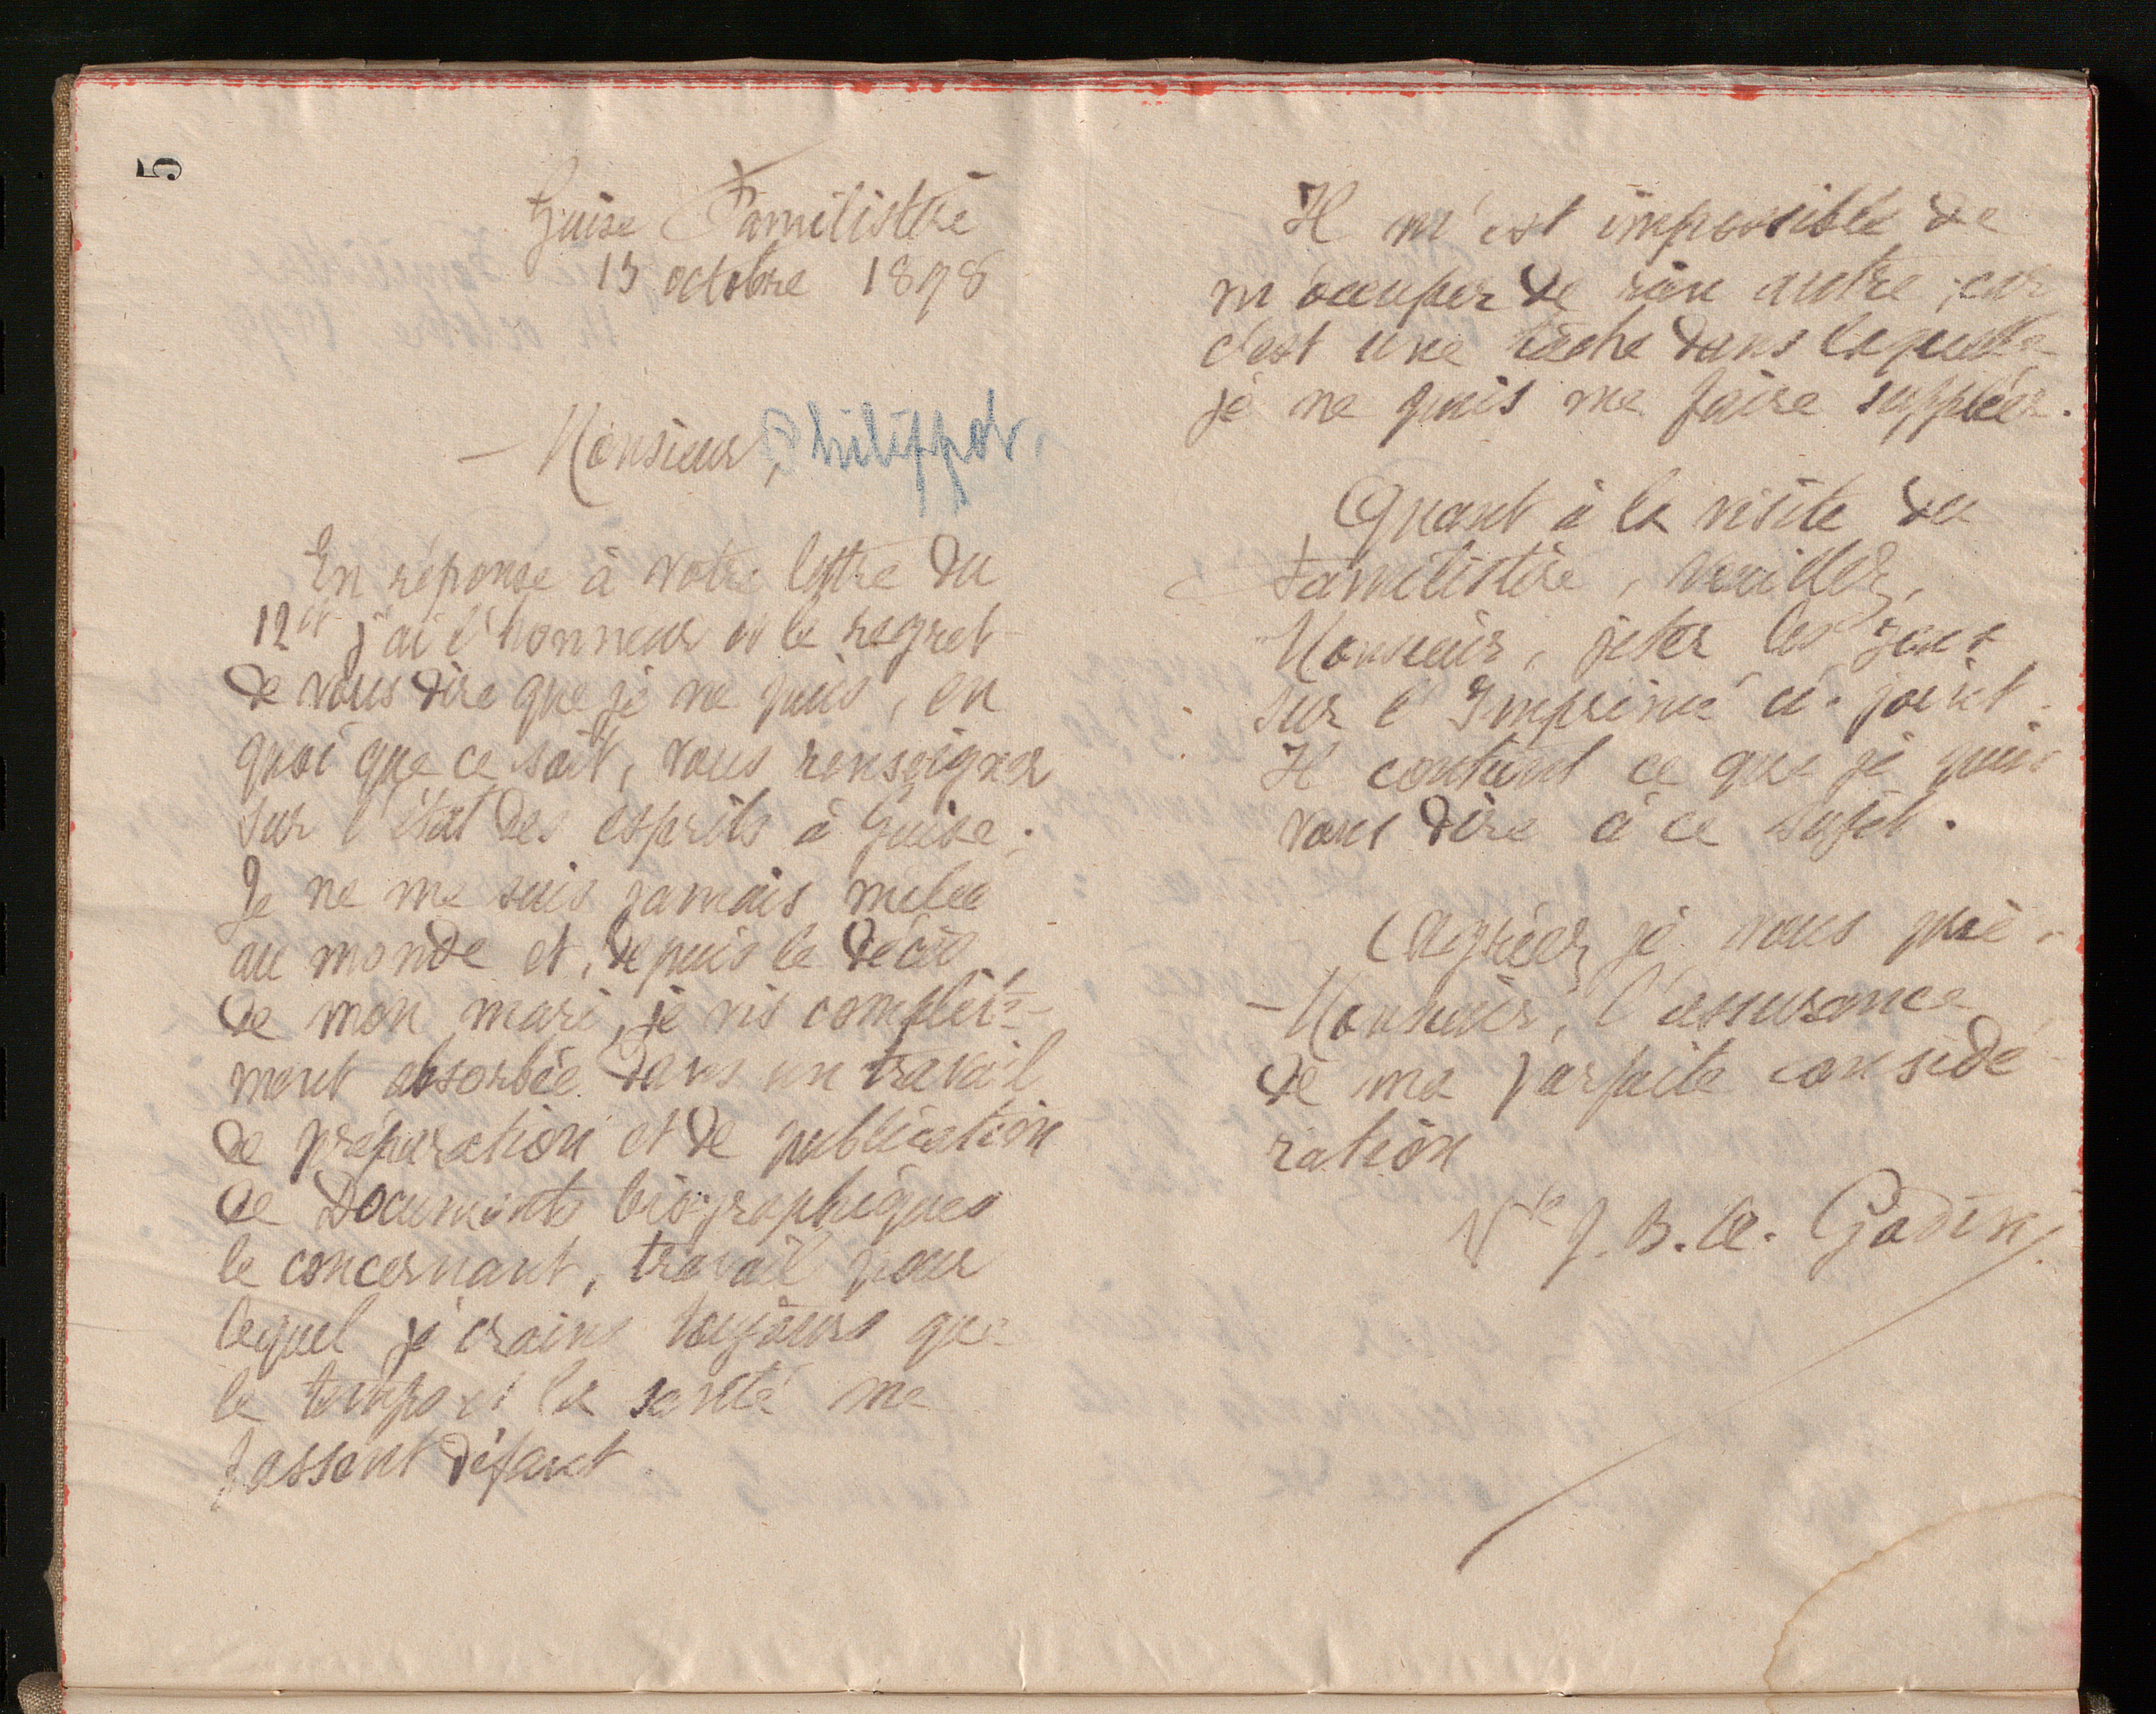 5
Guise Familistère
13 octobre 1898
Monsieur, Philippot,
En réponse à votre lettre du
12 ct j'ai l'honneur et le regret
de vous dire que je ne puis, en
quoi que ce soit, vous renseigner
sur l'état des esprits à Guise.
Je ne me suis jamais mêlée
au monde et, depuis le décès
de mon mari, je vis complète-
ment absorbée dans un travail
de préparation et de publication
de Documents biographiques
le concernant, travail pour
lequel je crains toujours que
le temps et la santé me
fassent défaut.
Il m'est impossible de
m'occuper de rien autre, car
c'est une tâche dans laquelle
je ne puis me faire suppléer.
Quant à la visite du
Familistère, veuillez,
Monsieur, jeter les yeux
sur l'Imprimé ci-joint.
Il contient ce que je puis
vous dire à ce sujet.
Agréez, je vous prie,
Monsieur, l'assurance
de ma parfaite considé
ration
Vve J. B. A. Godin